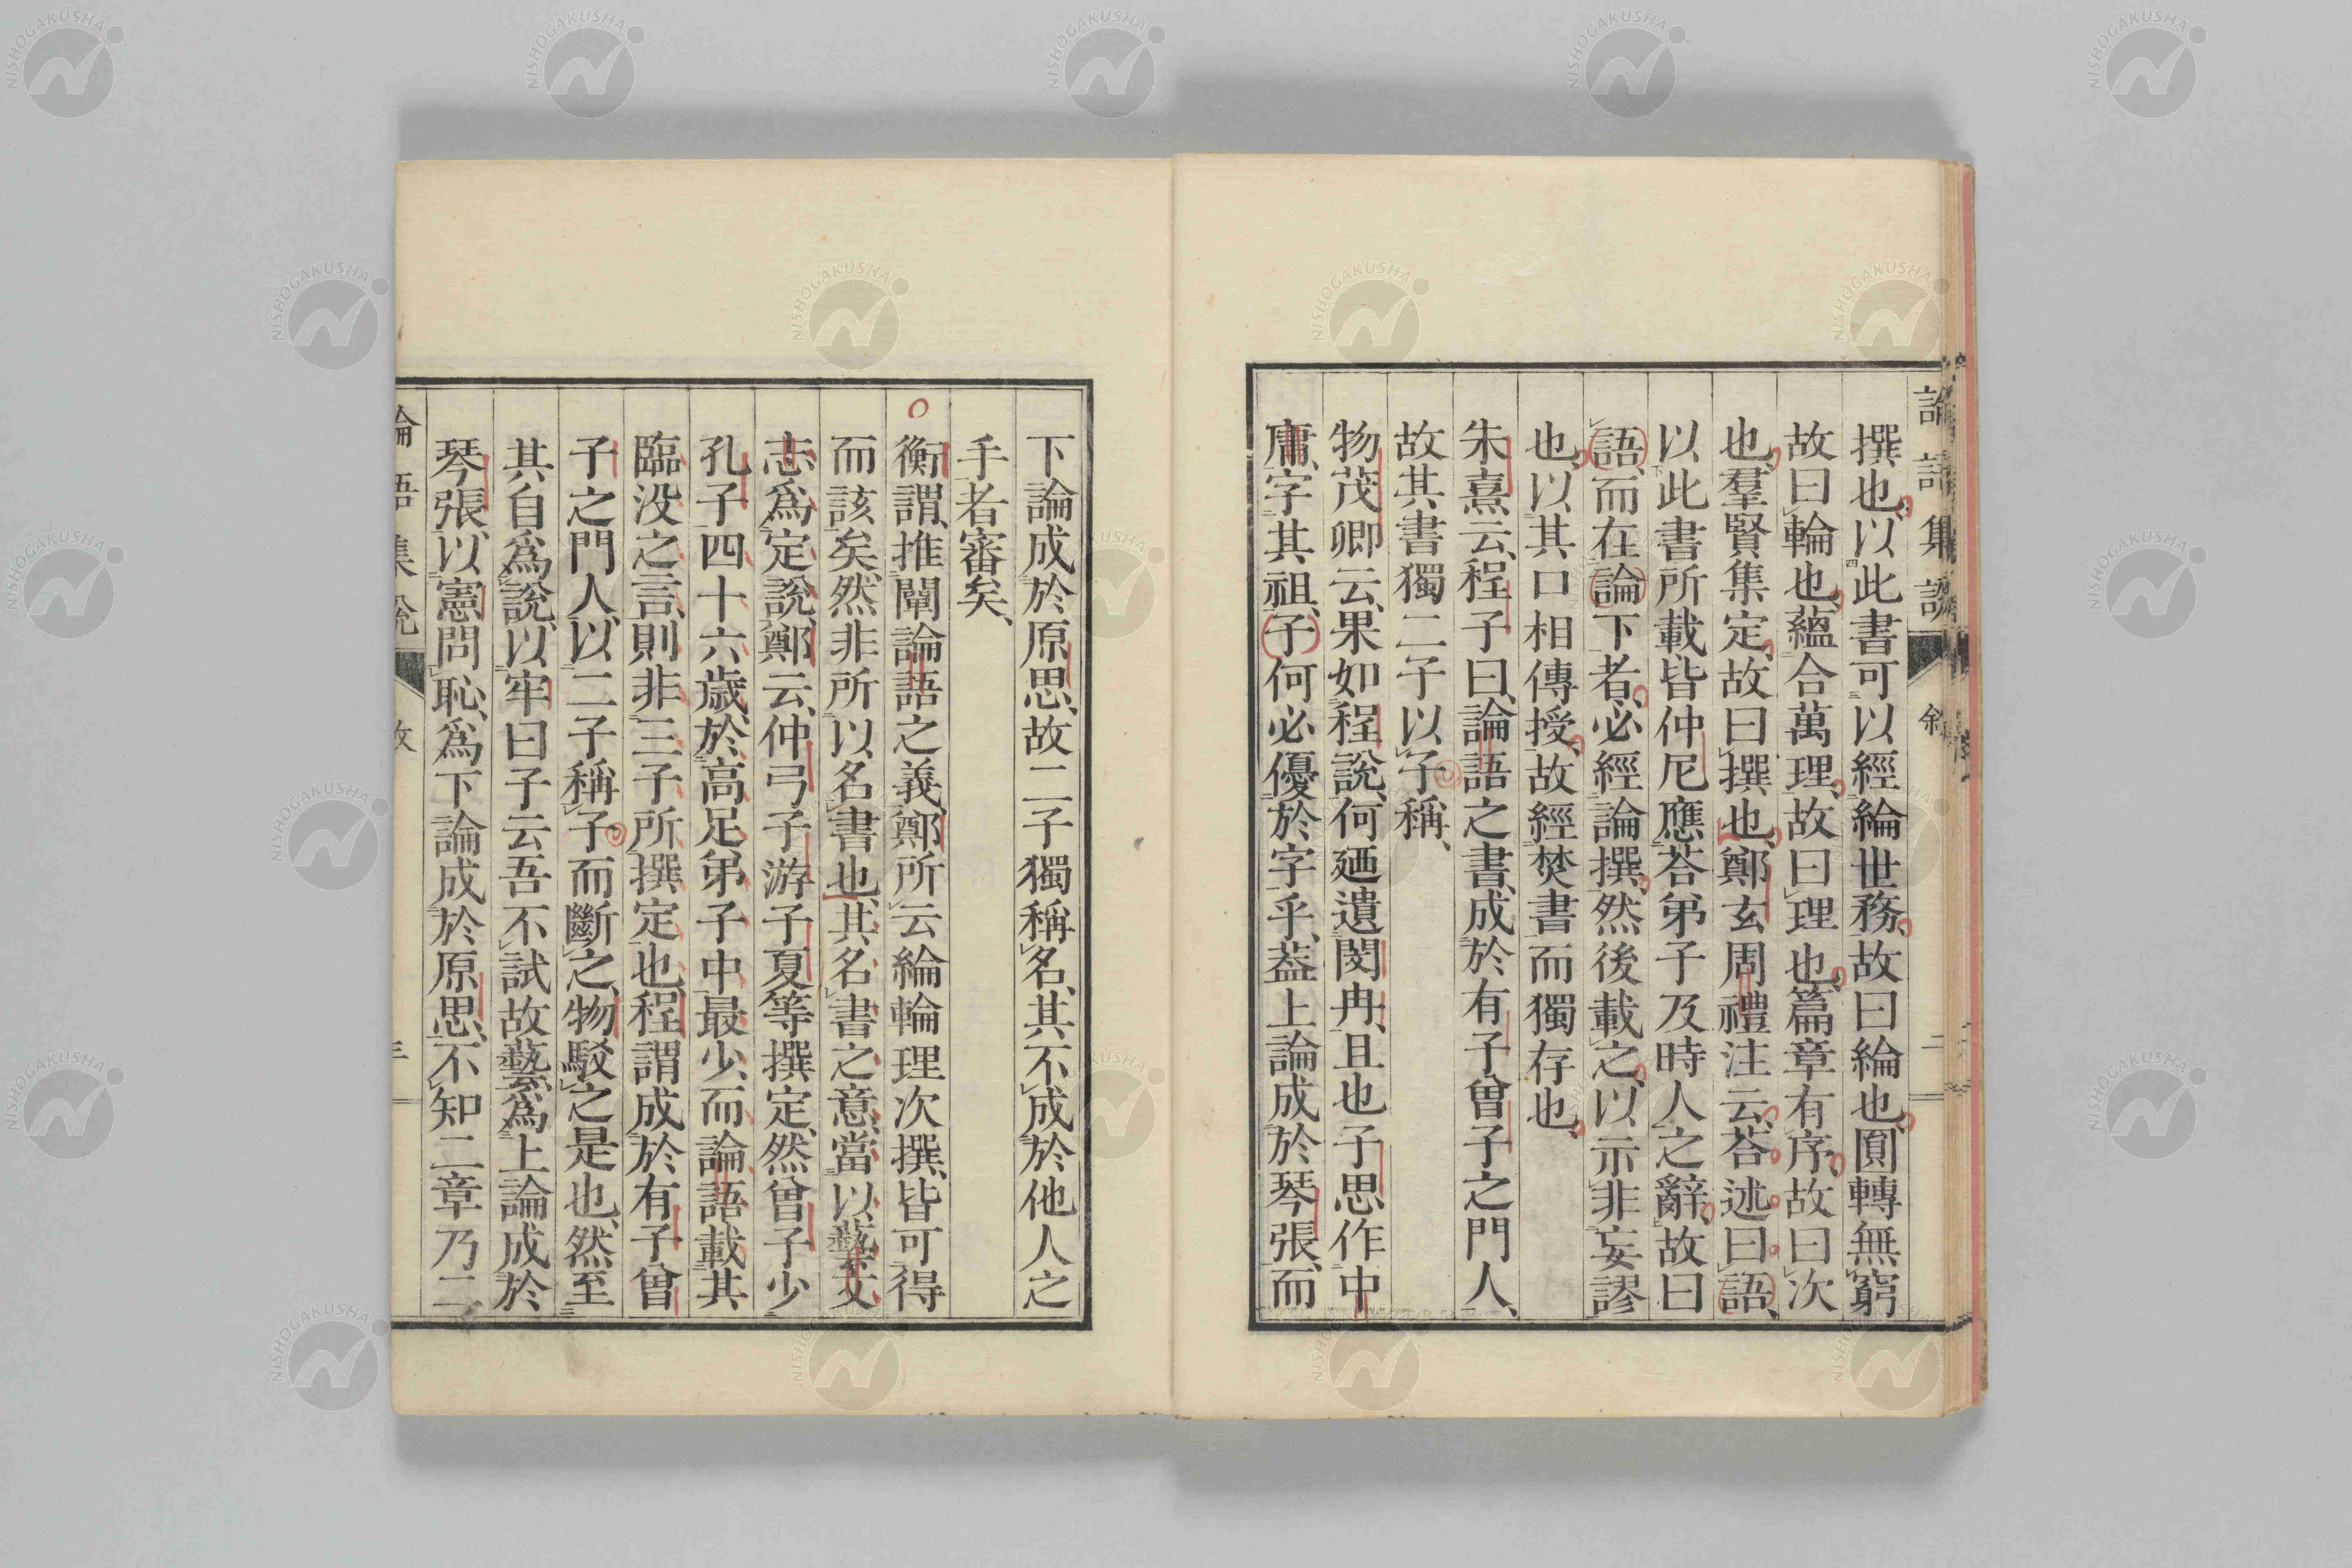 論語集說 敘 二
撰也、以此書可以經綸世務、故曰綸也、圓轉無窮
故曰輪也、蘊合萬理、故曰理也、篇章有序、故曰次
也、羣賢集定、故曰撰也、鄭玄周禮注云、荅述曰語、
以此書所載皆仲尼應荅弟子及時人之辭、故曰
語、而在論下者、必經論撰、然後載之、以示非妄謬
也、以其口相傳授、故經焚書而獨存也、
朱熹云、程子曰、論語之書、成於有子曾子之門人、
故其書獨二子以子稱、
物茂卿云、果如程說、何廼遺閔冉、且也子思作中
庸、字其祖、子何必優於字乎、蓋上論成於琴張、而
下論成於原思、故二子獨稱名、其不成於他人之
手者審矣、
衡謂、推闡論語之義、鄭所云綸輪理次撰、皆可得
而該矣、然非所以名書也、其名書之意、當以藝文
志爲定說、鄭云、仲弓子游子夏等撰定、然曾子少
孔子四十六歲、於高足弟子中最少、而論語載其
臨没之言、則非三子所撰定也、程謂成於有子曾
子之門人、以二子稱子而斷之、物駁之是也、然至
其自爲說、以牢曰子云吾不試故藝、爲上論成於
琴張、以憲問恥、爲下論成於原思、不知二章乃二
論語集說